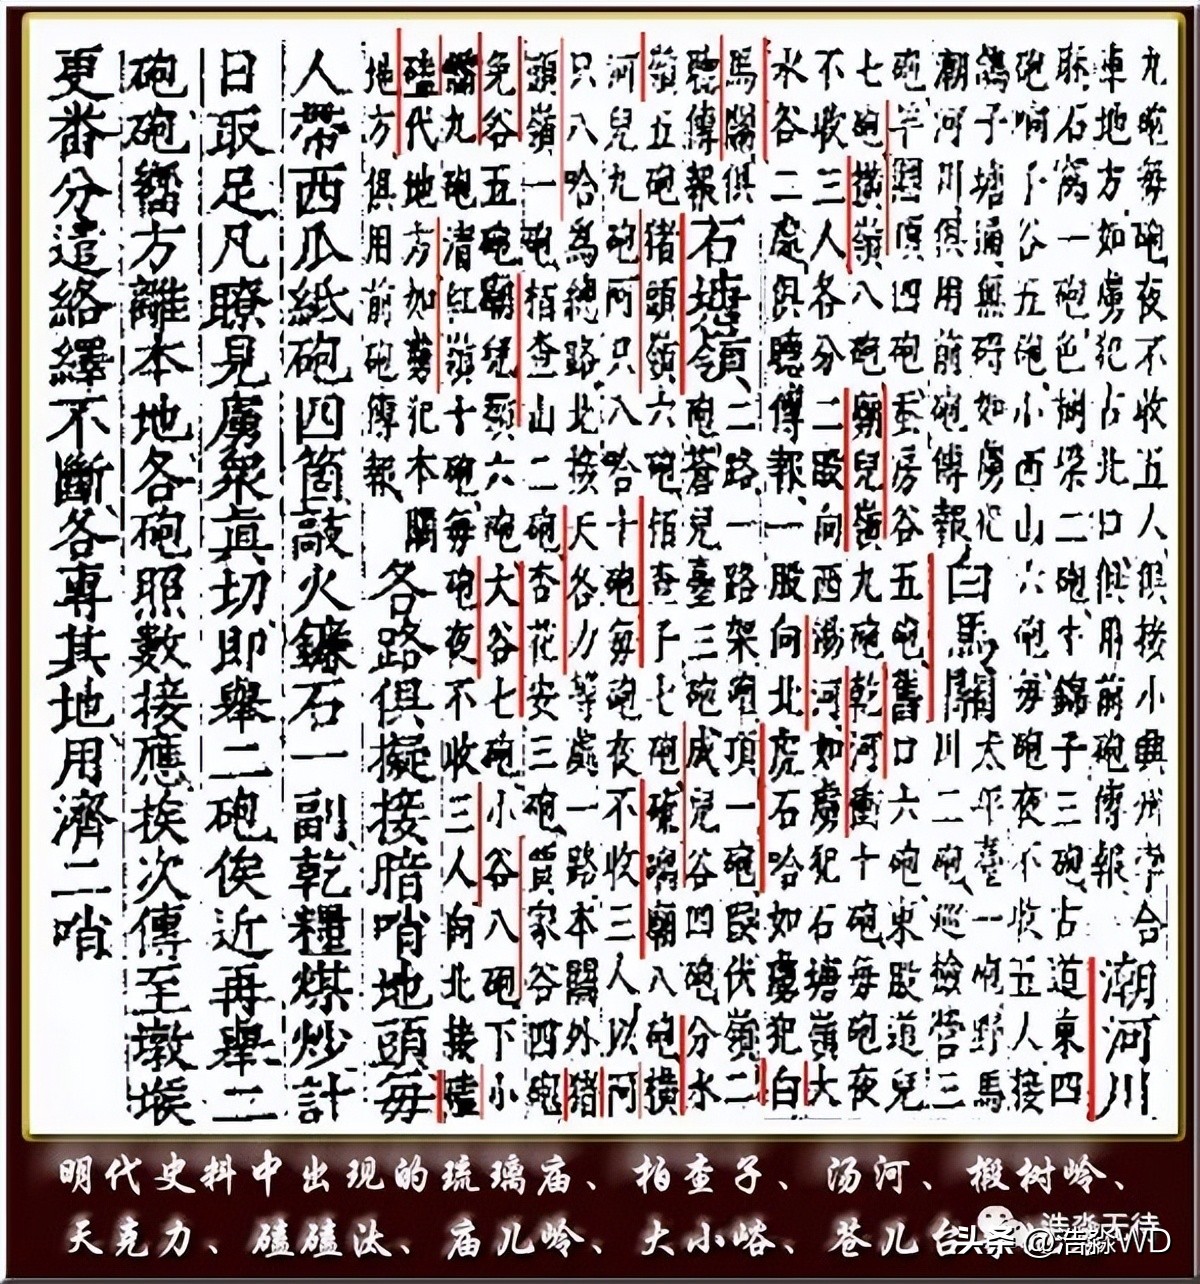 九砲每砲夜不收五人俱接小興州李合
車地方如虜犯古北口俱用前砲傳報 潮河川
石窩一砲色樹梁二砲十錦子三砲古道東四
砲啊了谷五砲小西山六砲每砲夜不收五人接
鴿子塘通無碍如虜犯
潮河川俱用前砲傳報 白馬關
太平臺一砲野馬
川二砲巡檢營三
砲平照頂四砲蚕房谷五砲舊口六砲東段道兒
七砲橫嶺八砲廟兒嶺九砲乾河衝十砲每砲夜
不收三人各分二股向西湯河如虜犯石塘嶺大
水谷二處俱聽傳報一股向北虎石哈如虜犯白
馬關俱
聽傳報 石塘嶺
二路一路架砲頂一砲伏嶺二
砲蒼兒臺三砲成兒谷四砲分水
嶺五砲猪頭嶺六砲栢查子七砲磂璃廟八砲橫
河兒九砲兩只八哈十砲每砲夜不收三人以河
只八哈爲總路北接天各力等處一路本關外猪
頭嶺一砲栢查山二砲杏花安三砲買家谷四砲
兔谷五砲廟兒頭六砲大谷七砲小谷八砲下小
九砲清紅嶺十砲每砲夜不收三人向北接磕
磕代地方如虜犯本關
地方俱用前砲傳報 各路俱擬接暗哨地頭每
人帶西瓜紙砲四箇敲火鐮石一副乾糧煤炒計
日取足凡瞭見虜衆真切即舉二砲俟近再舉二
砲砲響方離本地各砲照數接應挨次傳至墩堠
更番分遣絡繹不斷各專其地用濟二哨
明代史料中出现的琉璃庙、柏查子、汤河、椴树岭、
天克力、磕磕汰、庙儿岭、大小峪、苍儿台
浩淼天待
头条 @浩淼WD